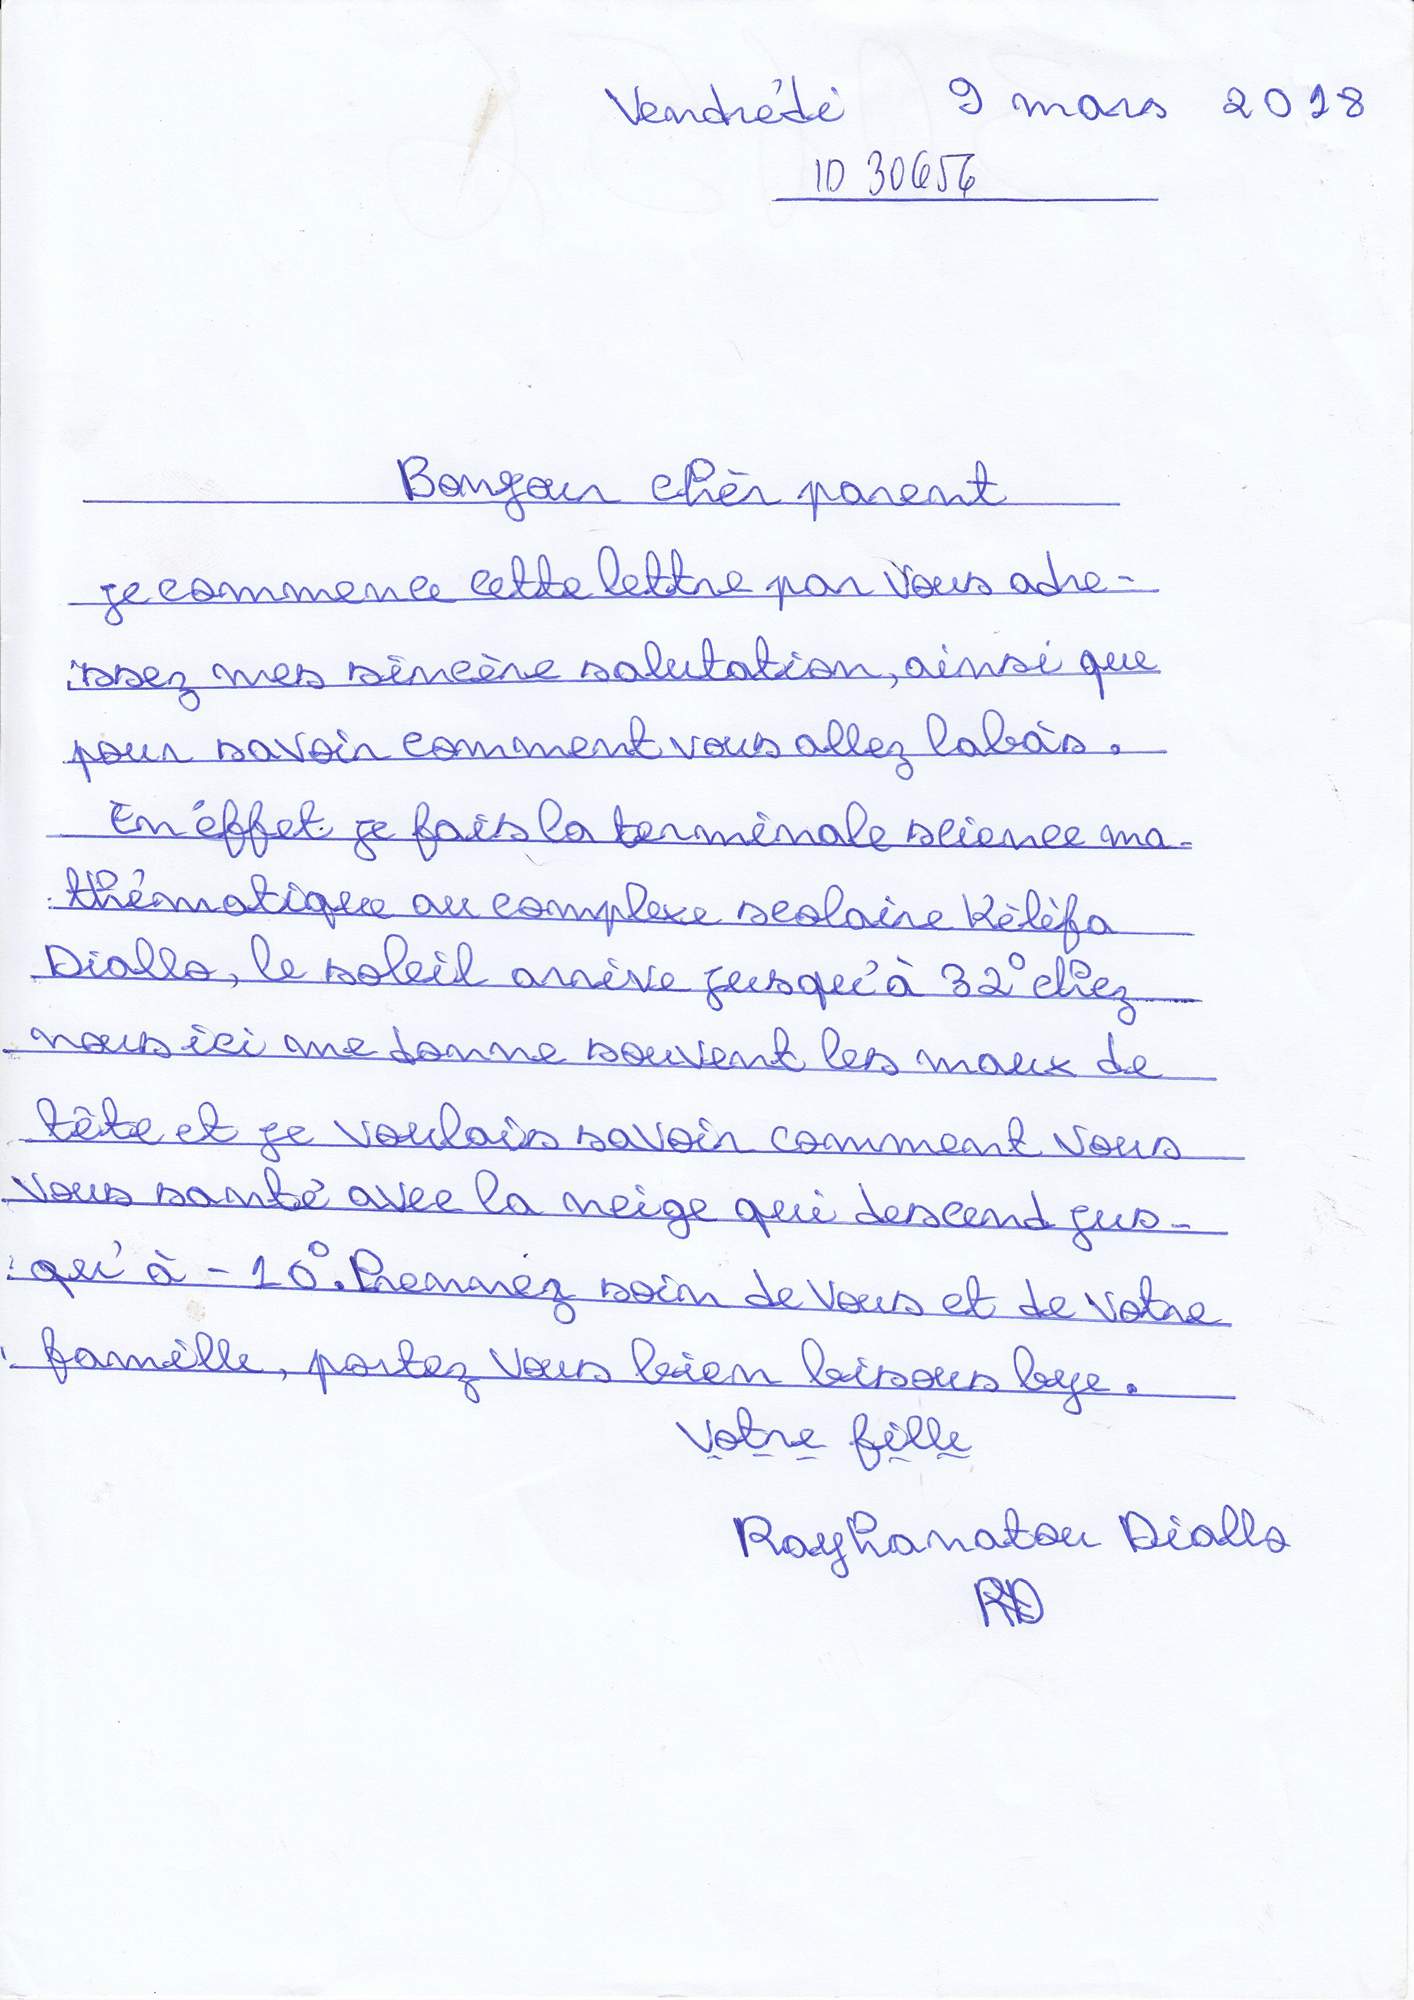 Vendrédi 9 mars 2018
ID 30656
Bonjour chèr parent
je commence cette lettre par vous adre-
ssez mes sincère salutation, ainsi que
pour savoir comment vous allez labàs.
En éffet je fais la terminale science ma-
thématique au complexe scolaire Kèlèfa
Diallo, le soleil arrive jusqu'à 32° chez
nous ici me donne souvent les maux de
tête et je voulais savoir comment vous
vous santé avec la neige qui descend jus-
qu'à -10°. Prennez soin de vous et de votre
famille, portez vous bien bisous bye.
Votre fille
Rayhanatou Diallo
RD